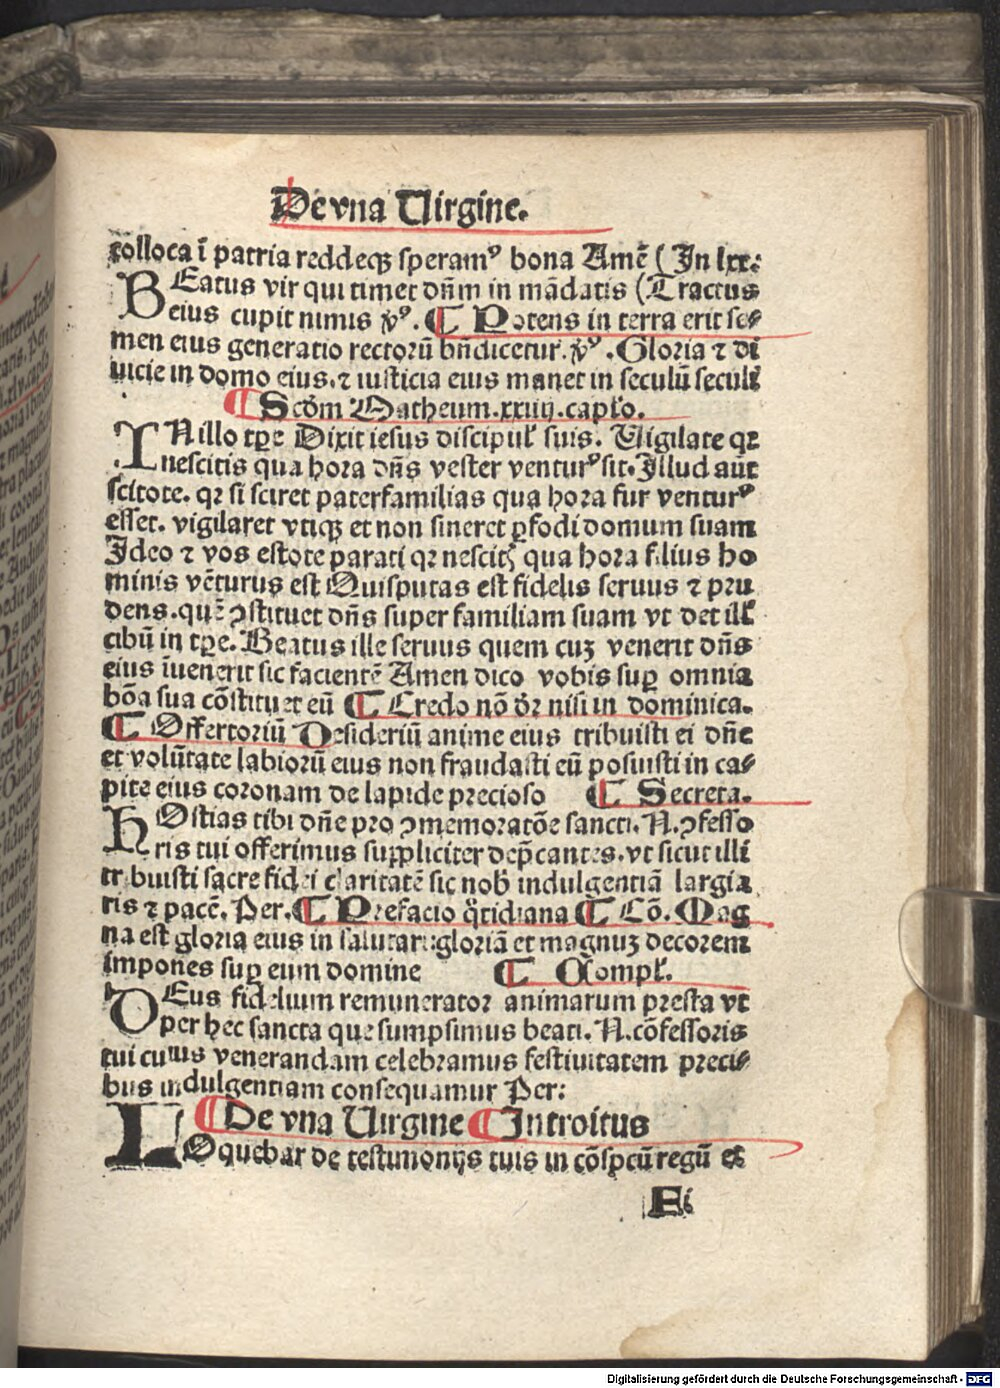 De vna Uirgine.
colloca ī patria reddeqꝫ speramꝰ bona Amē ( In lxx:
BEatus vir qui timet dn̄m in mādatis ( Tractus
eius cupit nimis ꝟꝰ. ¶ Potens in terra erit se⸗
men eius generatio rectorū bn̄dicetur. ꝟꝰ. Gloria ⁊ di
uicie in domo eius. ⁊ iusticia eius manet in seculū seculi
¶ Scd̄m Matheum. xxiiij. capło.
IN illo tꝑe Dixit iesus discipuł suis. Uigilate qꝛ
nescitis qua hora dn̄s vester venturꝰ sit. Illud aūt
scitote. qꝛ si sciret paterfamilias qua hora fur venturꝰ
esset. vigilaret vtiqꝫ et non sineret ꝑfodi domum suam
Ideo ⁊ vos estote parati qꝛ nescitꝭ qua hora filius ho
minis vēturus est Quis putas est fidelis seruus ⁊ pru
dens. quē ꝯstituet dn̄s super familiam suam vt det ill̄
cibū in tꝑe. Beatus ille seruus quem cuꝫ venerit dn̄s
eius īuenerit sic facientē Amen dico vobis suꝑ omnia
bōa sua cōstituet eū ¶ Credo nō dꝛ̄ nisi in dominica.
¶ Offertoriū Desideriū anime eius tribuisti ei dn̄e
et volūtate labiorū eius non fraudasti eū posuisti in ca⸗
pite eius coronam de lapide precioso ¶ Secreta.
HOstias tibi dn̄e pro ꝯmemoratōe sancti. N. ꝯfesso
ris tui offerimus suppliciter dep̄cantes. vt sicut illi
tribuisti sacre fidei claritatē sic nob̄ indulgentiā largia
ris ⁊ pacē. Per. ¶ Prefacio q̄tidiana ¶ Cō. Mag
na est gloria eius in salutari: gloriā et magnuꝫ decorem
impones suꝑ eum domine ¶ Compł.
DEus fidelium remunerator animarum presta vt
per hec sancta que sumpsimus beati. N. cōfessoris
tui cuius venerandam celebramus festiuitatem preci⸗
bus indulgentiam consequamur Per:
¶ De vna Uirgine ¶ Introitus
LOquebar de testimonijs tuis in cōspcū regū et
Ei
Digitalisierung gefördert durch die Deutsche Forschungsgemeinschaft - DFG